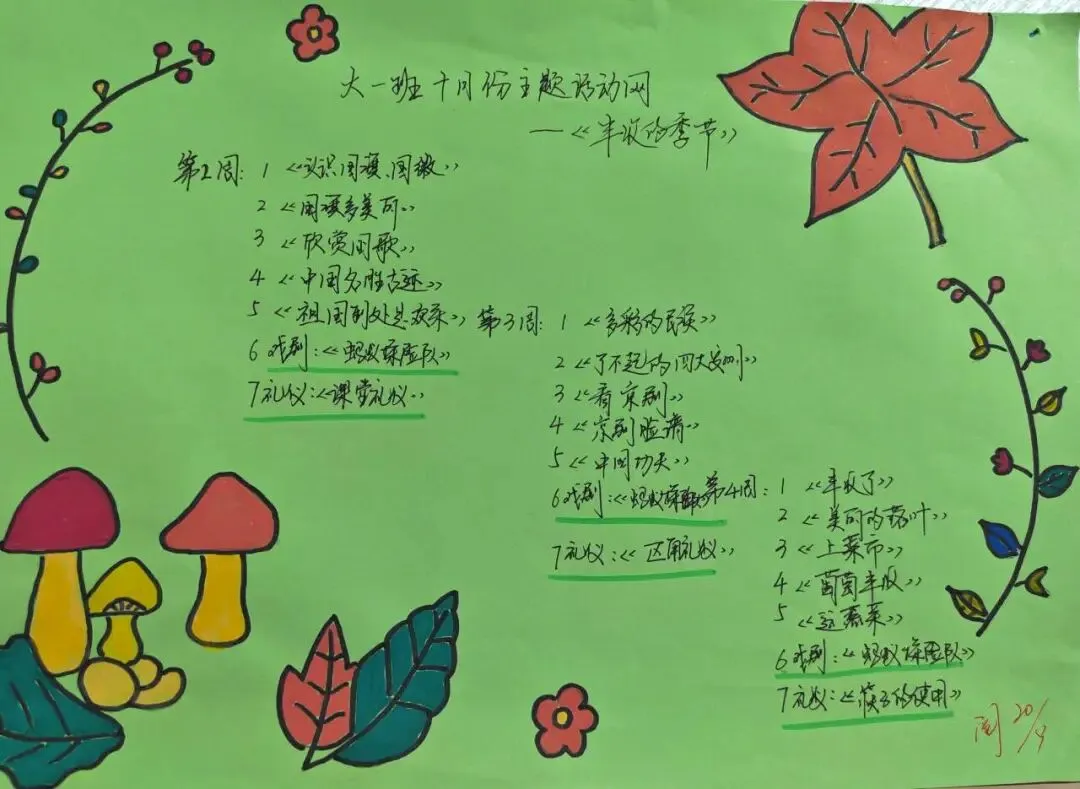 大一班十月份主题活动网
—《丰收的季节》
第2周: 1 《认识国旗、国徽》
2 《国旗多美丽》
3 《欣赏国歌》
4 《中国名胜古迹》
5 《祖国到处是欢乐》
6 戏剧:《蚂蚁探险队》
7 礼仪:《课堂礼仪》
第3周: 1 《多彩的民族》
2 《了不起的四大发明》
3 《看京剧》
4 《京剧脸谱》
5 《中国功夫》
6 戏剧:《蚂蚁探险队》
7 礼仪:《区角礼仪》
第4周: 1 《丰收了》
2 《美丽的落叶》
3 《上菜市》
4 《葡萄丰收》
5 《运蔬菜》
6 戏剧:《蚂蚁探险队》
7 礼仪:《筷子的使用》
20/9